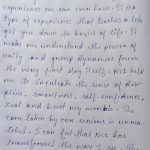 experience you can ever have. It is a
type of experience that teaches a lets
get you down to basics of life. It
make me understand the power of
unity and group dynamics from
the very first day itself. NCC help
me to inculcate the sense of disci-
pline, smartness, self-confidence
zeal and boost my morale. The
care taken by our seniors is unma-
tched. I can feel that NCC has
transformed the way I